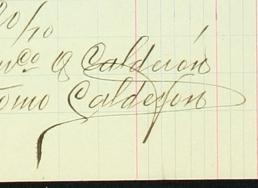 20/10
nco Q Calderón
tomo Calderon